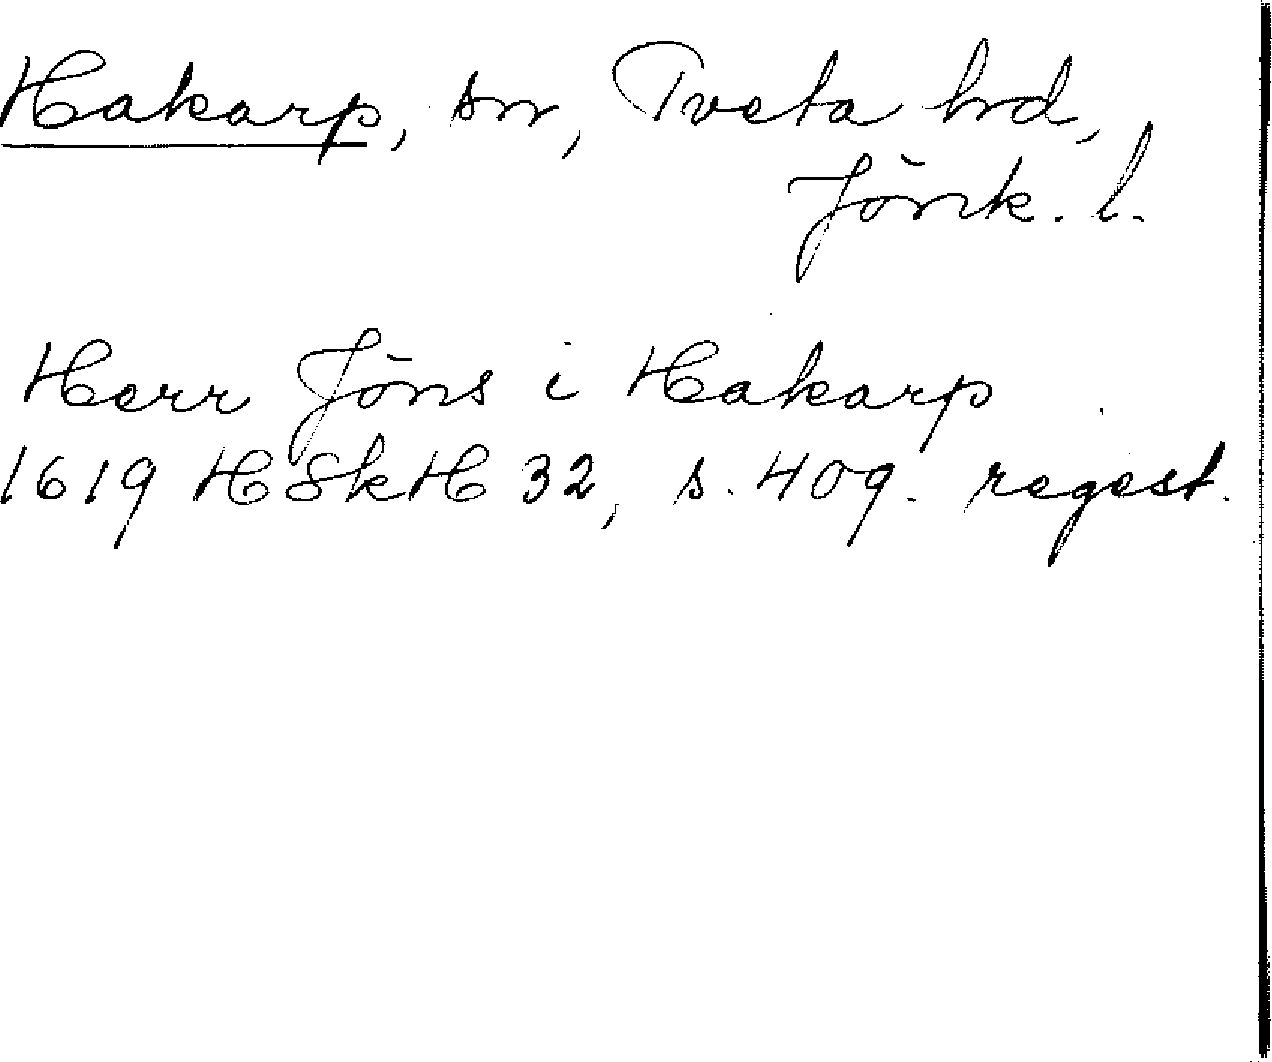 Hakarp, sn, Tveta hd,
Jönk. l.
Herr Jöns i Hakarp
1619 HSkH 32, s. 409. regest.